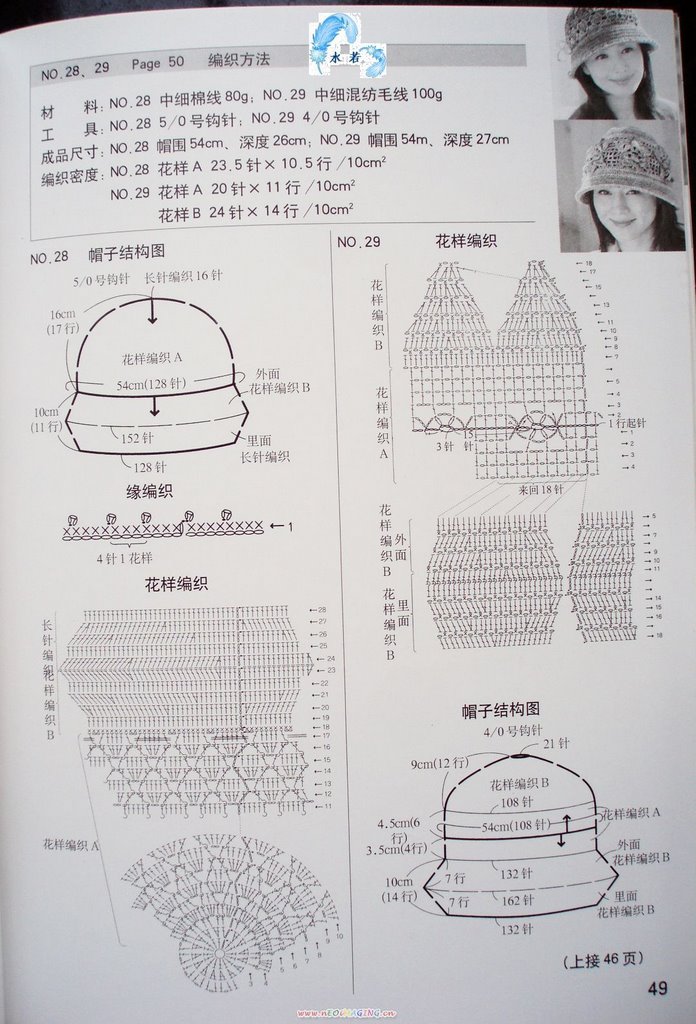 水若
NO.28、29 Page 50 编织方法
材 料: NO.28 中细棉线80g; NO.29 中细混纺毛线100g
工 具: NO.28 5/0号钩针; NO.29 4/0号钩针
成品尺寸: NO.28 帽围54cm、深度26cm; NO.29 帽围54m、深度27cm
编织密度: NO.28 花样A 23.5针×10.5行/10cm²
NO.29 花样A 20针×11行/10cm²
花样B 24针×14行/10cm²
NO.28 帽子结构图
5/0号钩针 长针编织16针
16cm
(17行)
花样编织A
54cm(128针)
外面
花样编织B
10cm
(11行)
152针
里面
长针编织
128针
缘编织
1
4针1花样
花样编织
长针编织
花样编织B
28
27
26
25
24
23
22
21
20
19
18
17
16
15
14
13
12
11
花样编织A
10
9
8
7
6
5
3
NO.29 花样编织
花样编织B
18
17
15
13
11
10
9
8
7
花样编织A
5
4
3
2
1行起针
3针 15针
1
2
3
4
来回18针
花样编织B 外面
花样编织B 里面
5
7
9
10
11
14
15
16
18
帽子结构图
4/0号钩针
21针
9cm(12行)
花样编织B
108针
花样编织A
4.5cm(6行)
54cm(108针)
3.5cm(4行)
外面
花样编织B
132针
10cm
(14行)
7行
162针
7行
里面
花样编织B
132针
(上接46页)
49
www.nEOiMAGING.cn